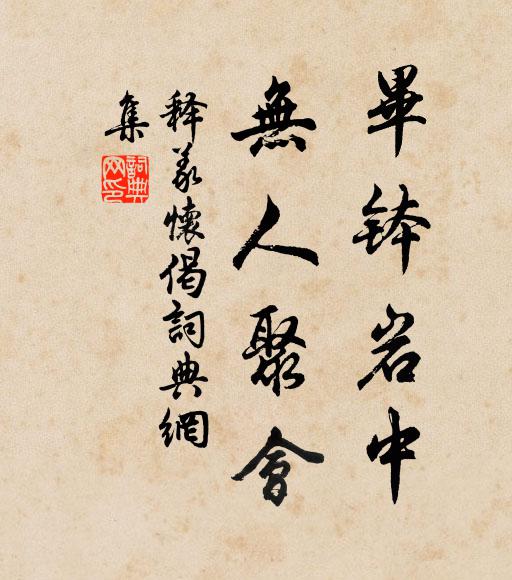 畢鉢岩中
無人聚會
释義懷偈詞典網
集
詞典網印